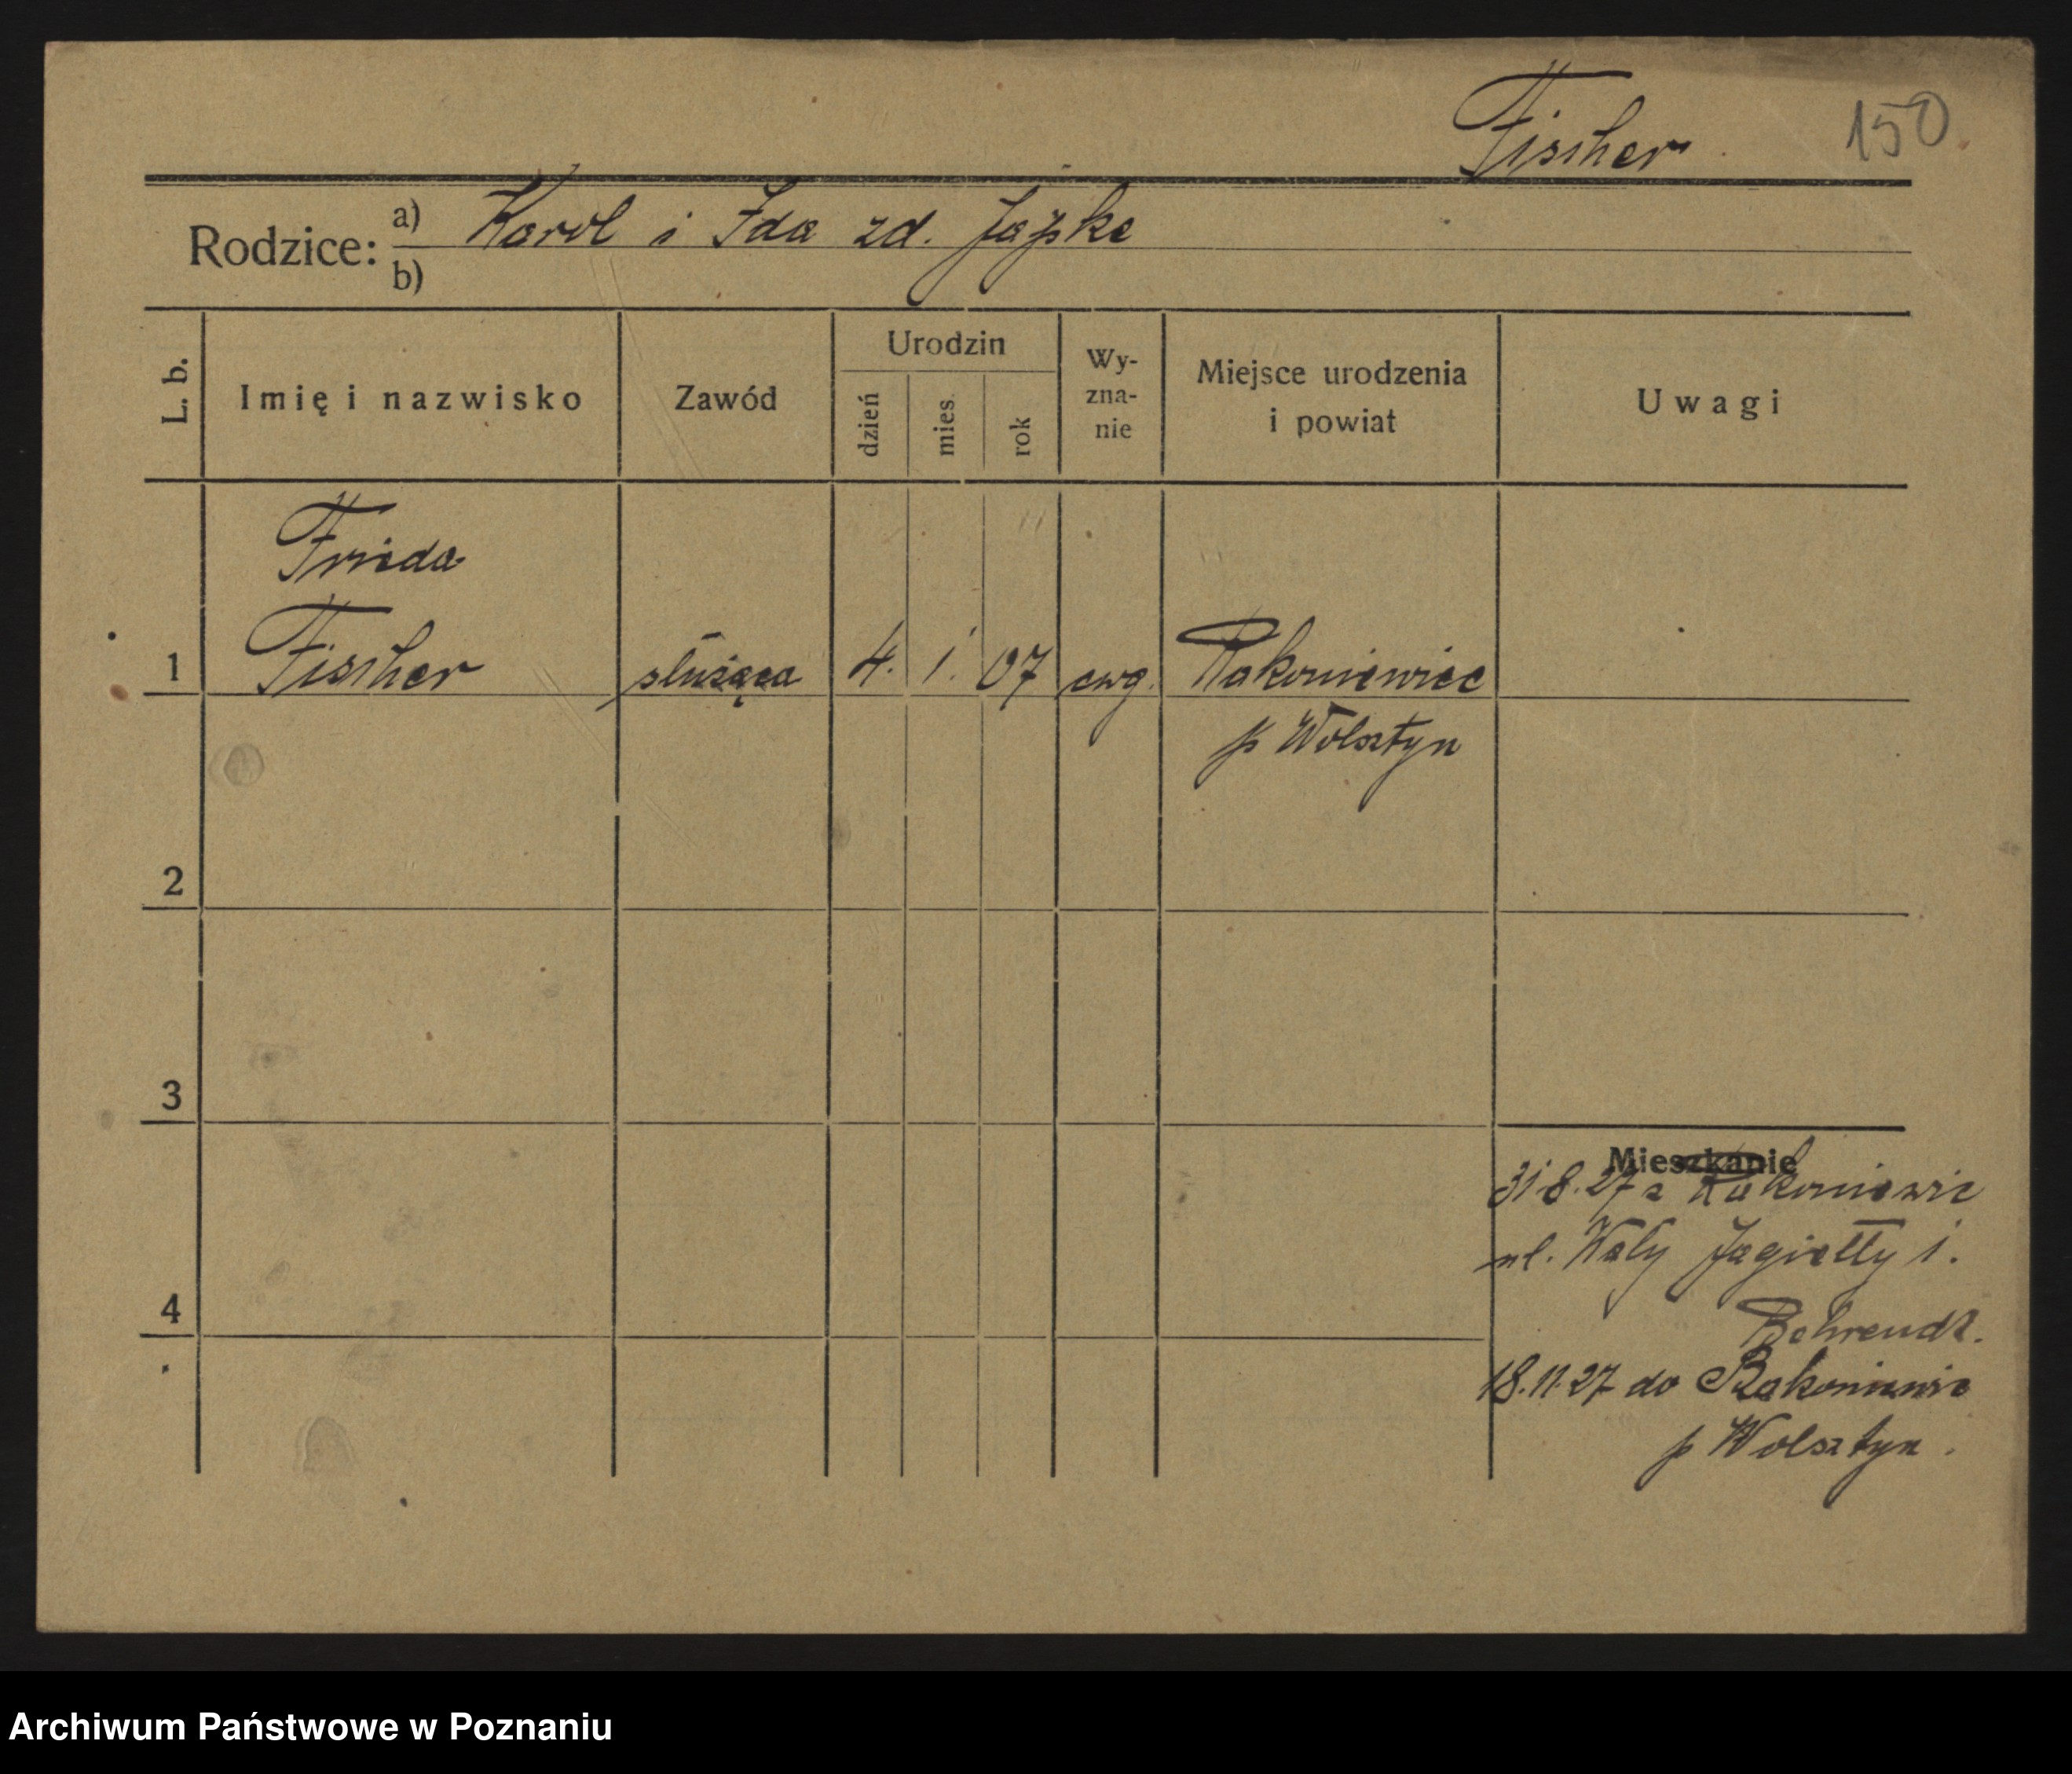 Fischer 150
Rodzice: a) Karol i Ida zd. Jaβke
b)
L. b. Imię i nazwisko Zawód Urodzin dzień mies. rok Wy-zna-nie Miejsce urodzenia i powiat Uwagi
Frieda
1 Fischer służąca 4. 1. 07 ewg. Rakoniewice
p Wolsztyn
2
3
Mieszkanie
31.8.27 z Rakoniewic
ul. Wały Jagiełły 1.
4 Behrendt.
18.11.27 do Rakoniewic
p Wolsztyn.
Archiwum Państwowe w Poznaniu